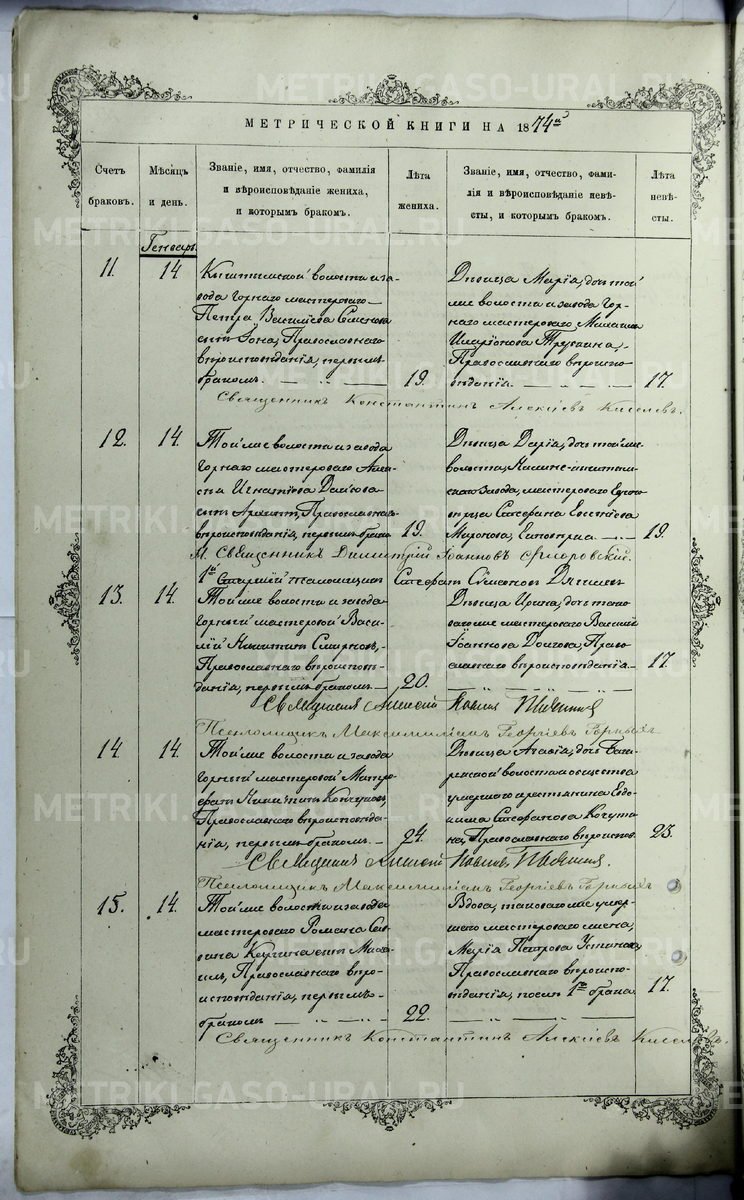 МЕТРИЧЕСКОЙ КНИГИ НА 1874й
Счетъ браковъ.
Мѣсяцъ и день.
Званіе, имя, отчество, фамилія
и вѣроисповѣданіе жениха,
и которымъ бракомъ.
Лѣта жениха.
Званіе, имя, отчество, фами-
лія и вѣроисповѣданіе невѣ-
сты, и которымъ бракомъ.
Лѣта невѣ-
сты.
Генварь
11. 14
Кыштымской волости и за-
вода горнаго мастероваго
Петра Васильева
сынъ Іона, Православнаго
вѣроисповѣданія, первымъ
бракомъ. 19.
Дѣвица Марія, дочь той
же волости и завода Гор-
наго мастероваго
Иларіонова
Православнаго вѣроиспо-
вѣданія. 17.
Священникъ Константинъ Алексѣевъ Киселевъ.
12. 14.
Той же волости и завода
Горнаго мастероваго
Игнатіева
сынъ Архипъ, Православнаго
вѣроисповѣданія, первымъ бракомъ 19.
Дѣвица Дарія, дочь той же
волости,
скаго завода, мастероваго
Евсевіева
Миронова, Единовѣрія. 19.
М. Священникъ Димитрій Іоанновъ Флоровскій.
1й Старшій Стефанъ Симеоновъ
13. 14.
Той же волости и завода
Горный мастеровой Васи-
лій Никитинъ Смирновъ,
Православнаго вѣроисповѣ-
данія, первымъ бракомъ 20.
Дѣвица Ирина, дочь тако-
ваго же мастероваго Василія
Іоаннова Долгова, Право-
славнаго вѣроисповѣданія. 17.
Священникъ Алексій Павловъ
Псаломщикъ Максимиліанъ Георгіевъ Горныхъ
14 14.
Той же волости и завода
Горный мастеровой Митро-
фанъ Никитинъ
Православнаго вѣроисповѣда-
нія, первымъ бракомъ. 24.
Дѣвица Агафія, дочь
волости и общества
умершаго крестьянина Евдо-
кима Стефанова
Православнаго вѣроиспов. 23.
Священникъ Алексій Павловъ
Псаломщикъ Максимиліанъ Георгіевъ Горныхъ
15. 14.
Той же волости и завода
мастероваго Романа
сынъ
Православнаго вѣро-
исповѣданія, первымъ
бракомъ 22.
Вдова, таковаго же умер-
шаго мастероваго жена,
Марія Петрова
Православнаго вѣроиспо-
вѣданія, послѣ 1го брака. 17.
Священникъ Константинъ Алексѣевъ Киселевъ.
METRIKI.GASO-URAL.RU